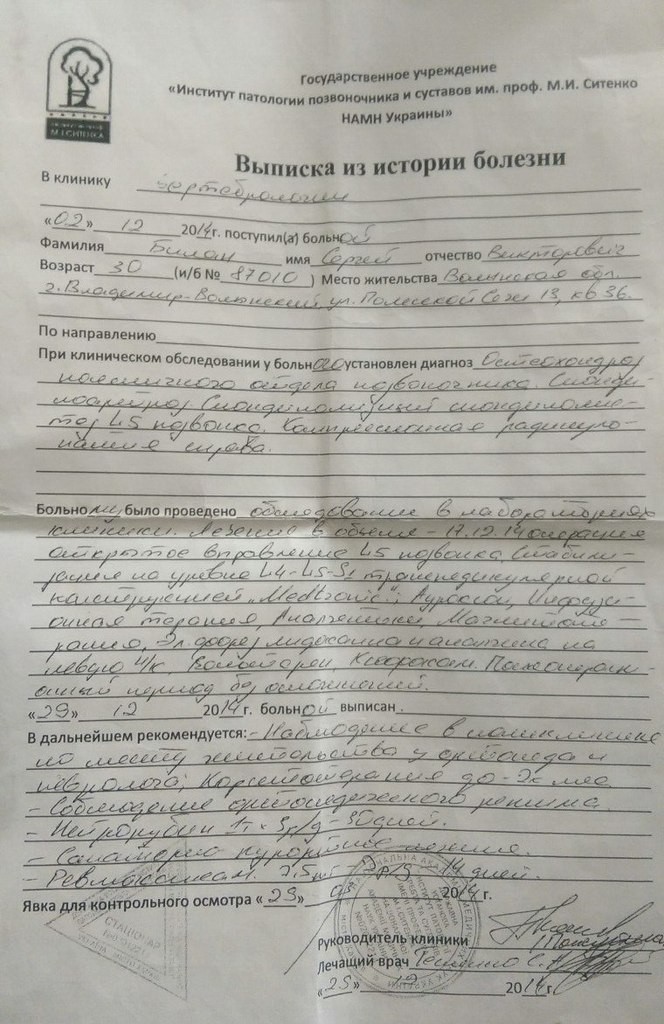 М.І.СИТЕНКА
Государственное учреждение
«Институт патологии позвоночника и суставов им. проф. М.И. Ситенко
НАМН Украины»
Выписка из истории болезни
В клинику вертебрологии
«02» 12 2014г. поступил(а) больной
Фамилия имя Сергей отчество Викторович
Возраст 30 (и/б № 87010) Место жительства Волынская обл.
г. Владимир-Волынский, ул. 13, кв 36.
По направлению
При клиническом обследовании у больного установлен диагноз Остеохондроз
поясничного отдела позвоночника. Спонди-
лоартроз. спондилолис-
тез L5 позвонка. Компрессионная радикуло-
патия справа.
Больному было проведено обследование в лабораториях
клиники. Лечение в объеме - 17.12.14 операция
открытое вправление L5 позвонка. Стабили-
зация на уровне L4-L5-S1 транспедикулярной
конструкцией "Medtronic". Инфузи-
онная терапия, Анальгетики, Магнитоте-
рапия, Эл. форез лидокаина и анальгина на
левую н/к. Послеопераци-
онный период без осложнений.
«29» 12 2014г. больной выписан.
В дальнейшем рекомендуется: - Наблюдение в поликлинике
по месту жительства у ортопеда и
невролога; Корсетотерапия до
- Соблюдение ортопедического режима.
- Нейрорубин 1т х 3р/д - 30 дней.
- Санаторно курортное лечение.
- дней.
Явка для контрольного осмотра «29» 2014г.
Руководитель клиники
Лечащий врач
«29» 12 2014г.
СТАЦИОНАР